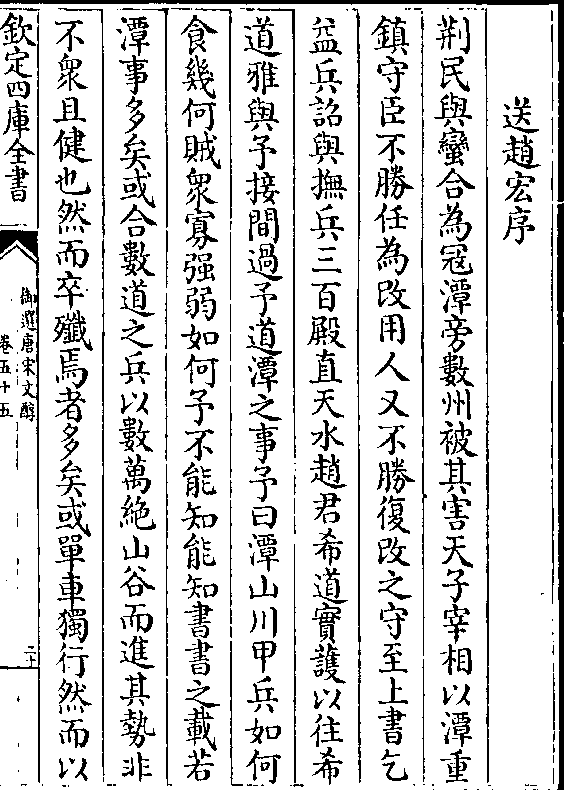 送趙宏序
荆民與蠻合為冦潭旁數州被其害天子宰相以潭重
鎮守臣不勝任為改用人又不勝復改之守至上書乞
益兵詔與撫兵三百殿直天水趙君希道實䕶以往希
道雅與予接間過予道潭之事予曰潭山川甲兵如何
食幾何賊衆寡强弱如何予不能知能知書書之載若
潭事多矣或合數道之兵以數萬絶山谷而進其勢非
不衆且健也然而卒殲焉者多矣或單車獨行然而以
欽定四庫全書
御選唐宋文醇
卷五十五
二十